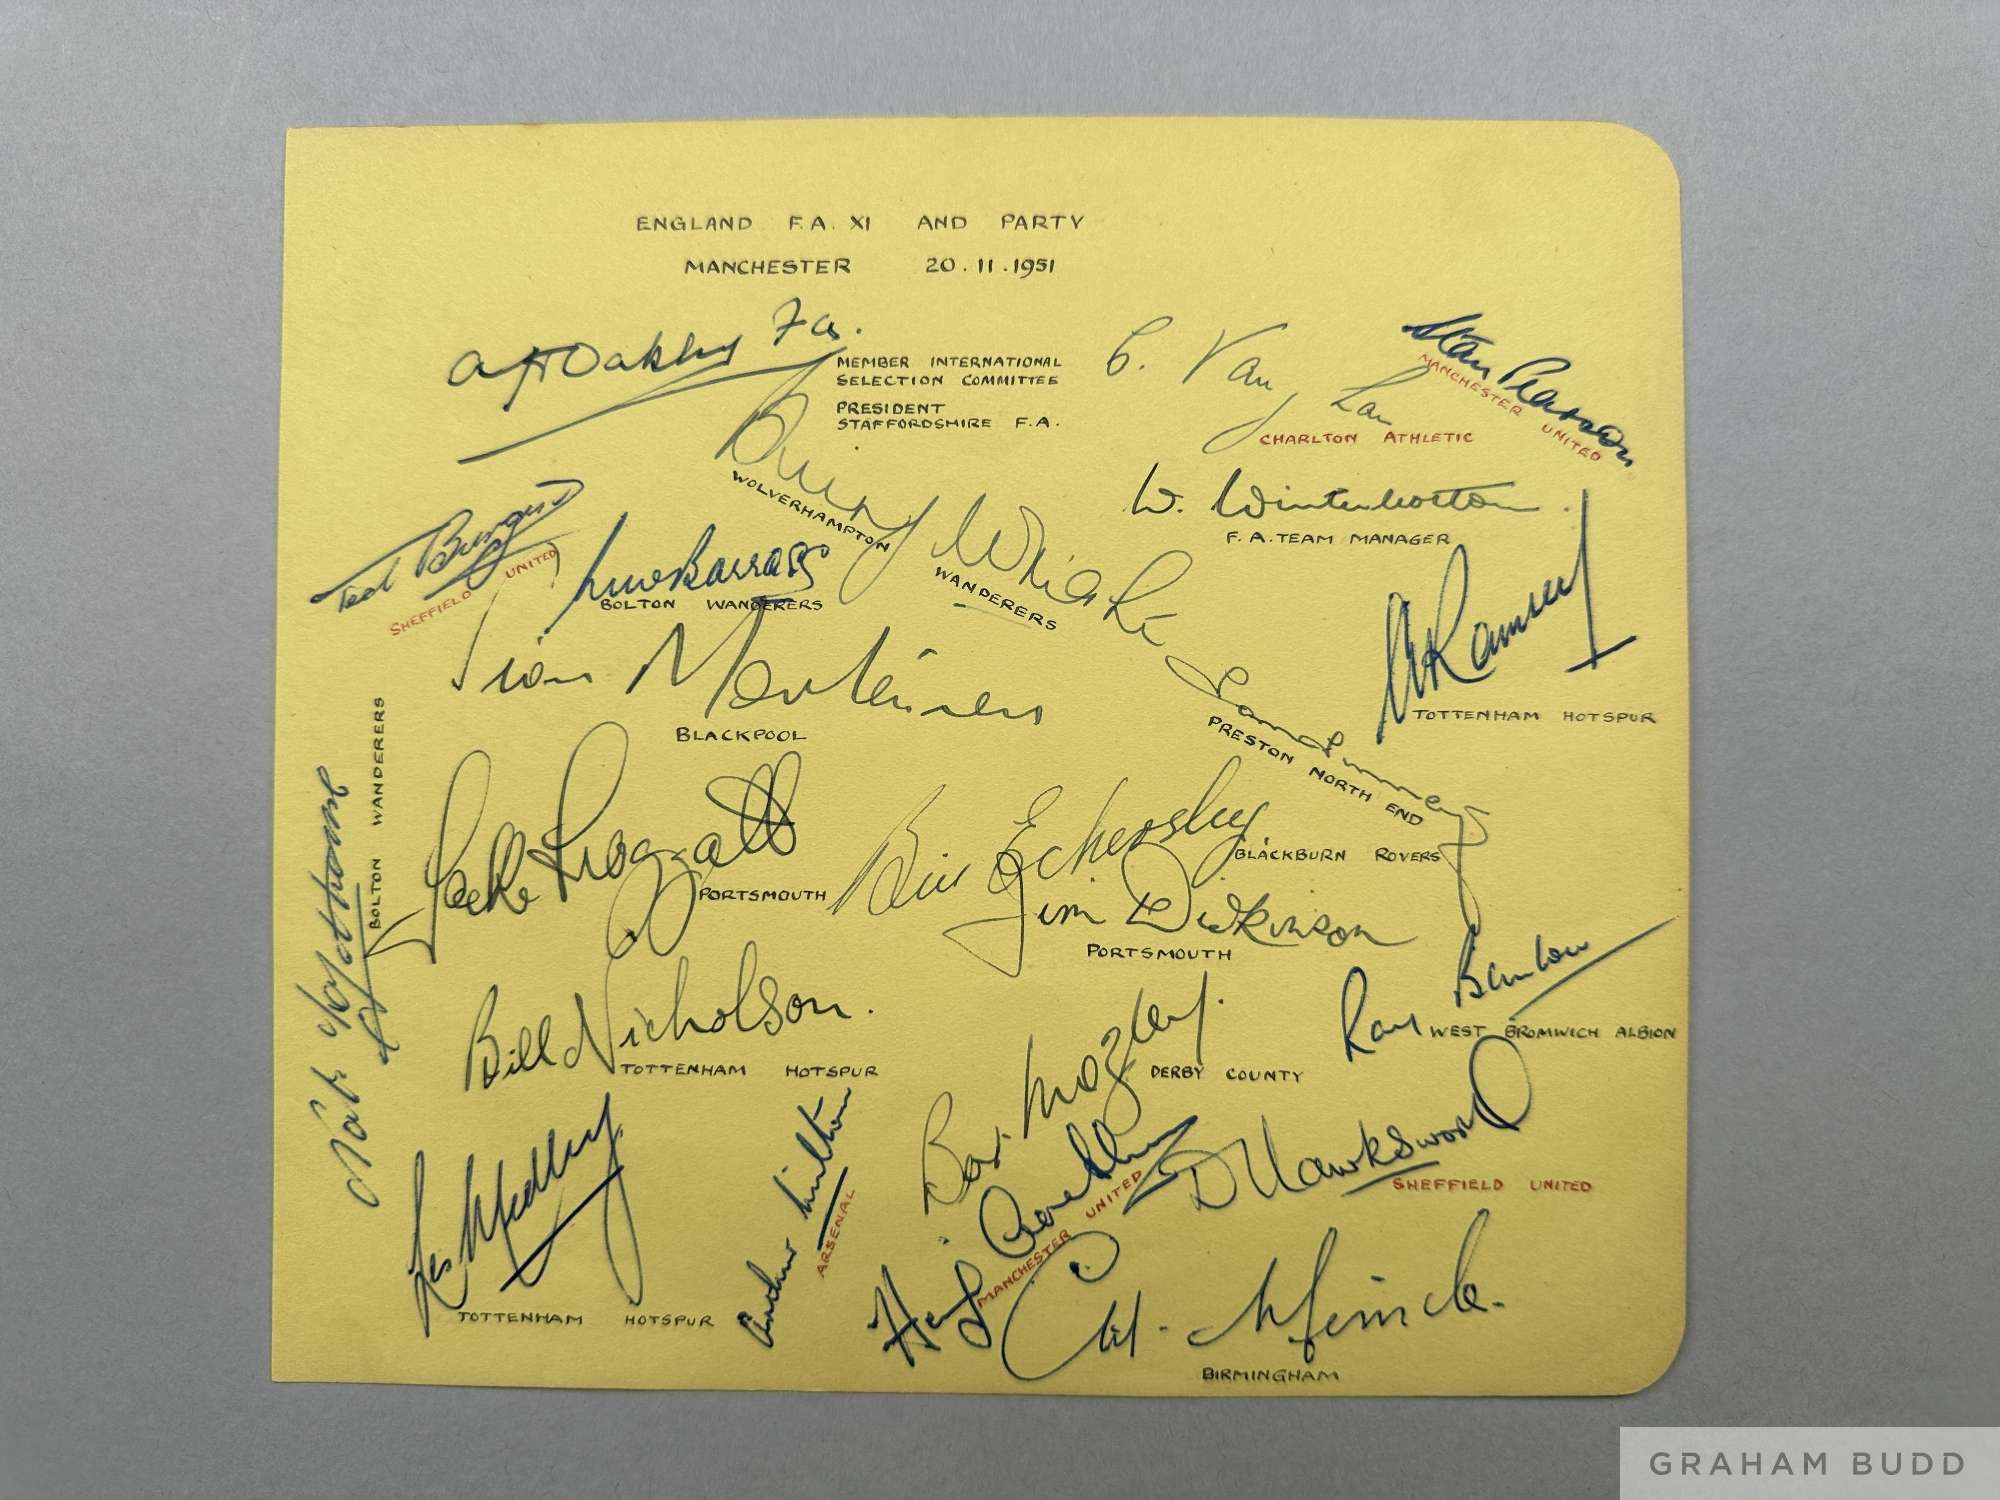 ENGLAND F.A. XI AND PARTY
MANCHESTER 20.11.1951
A H Oakley Fa.
MEMBER INTERNATIONAL
SELECTION COMMITTEE
PRESIDENT
STAFFORDSHIRE F.A.
CHARLTON ATHLETIC
Stan Pearson
MANCHESTER UNITED
Billy Wright
WOLVERHAMPTON WANDERERS
W. Winterbottom.
F.A. TEAM MANAGER
Ted Burgin
SHEFFIELD UNITED
Barrass
BOLTON WANDERERS
Stan Mortensen
BLACKPOOL
A Ramsey
TOTTENHAM HOTSPUR
Tom Finney
PRESTON NORTH END
Nat Lofthouse
BOLTON WANDERERS
Jack Froggatt
PORTSMOUTH
Bill Eckersley
BLACKBURN ROVERS
Jim Dickinson
PORTSMOUTH
Ray Barlow
WEST BROMWICH ALBION
Bill Nicholson.
TOTTENHAM HOTSPUR
Bert Mozley.
DERBY COUNTY
Les Medley
TOTTENHAM HOTSPUR
Arthur Milton
ARSENAL
Henry Cockburn
MANCHESTER UNITED
D Hawksworth
SHEFFIELD UNITED
G H. Merrick.
BIRMINGHAM
GRAHAM BUDD